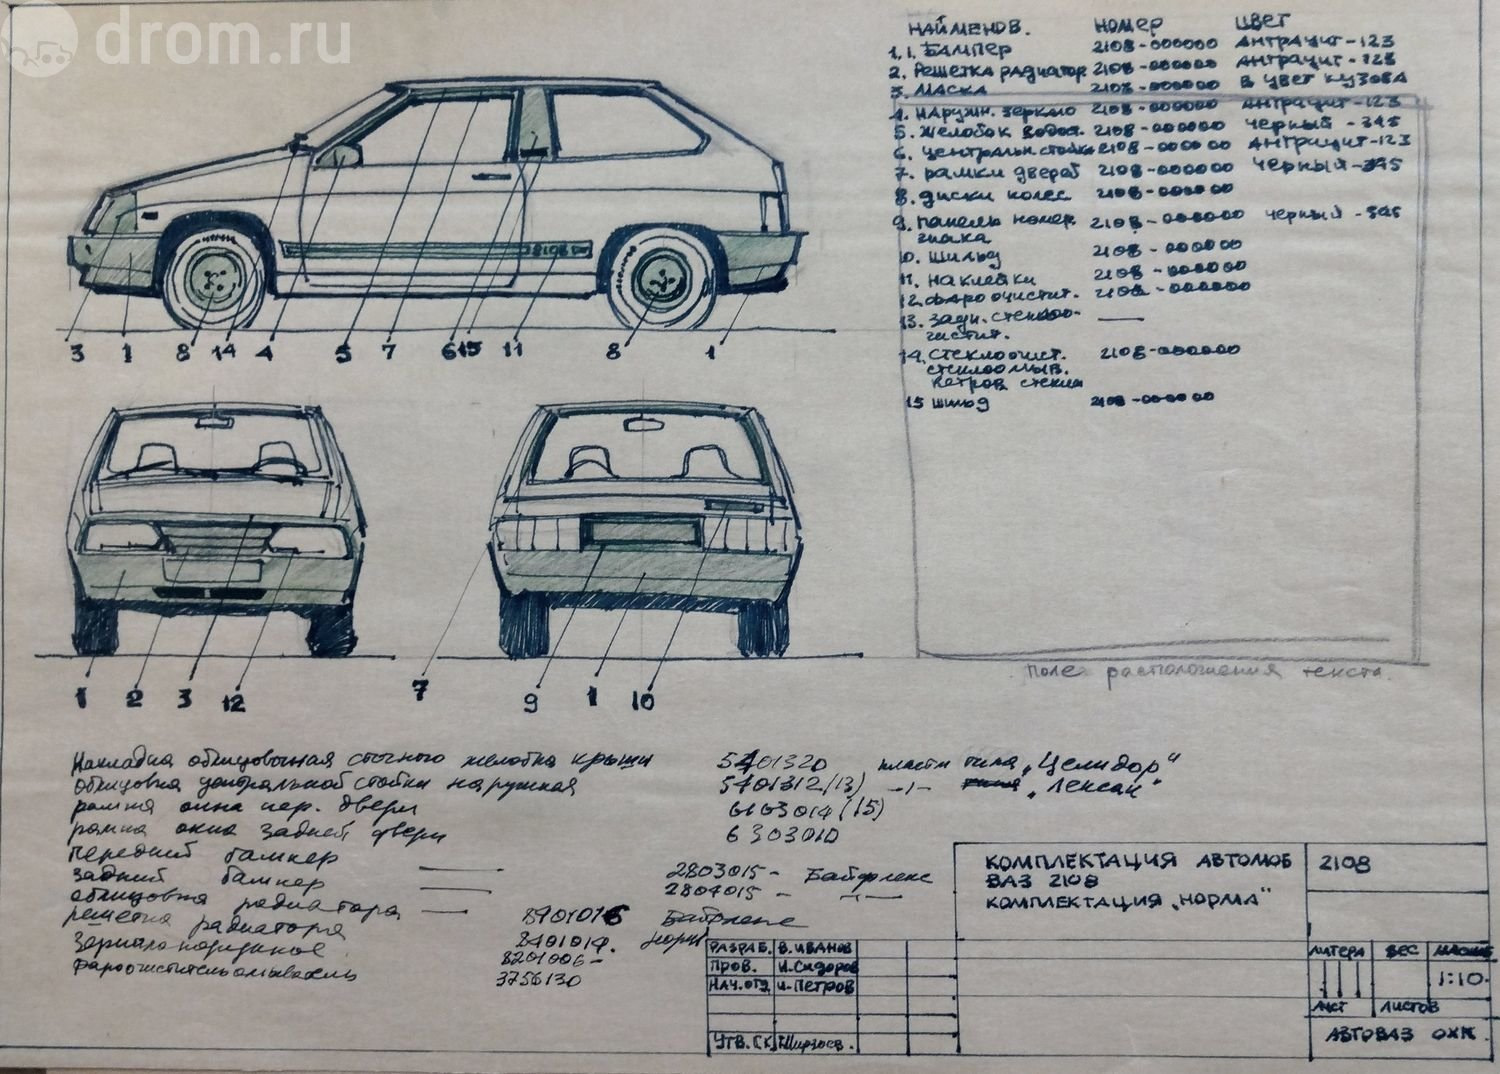 drom.ru
НАИМЕНОВ. НОМЕР ЦВЕТ
1. БАМПЕР 2108-000000 АНТРАЦИТ-123
2. РЕШЕТКА РАДИАТОР 2108-000000 АНТРАЦИТ-123
3. МАСКА 2108-000000 В ЦВЕТ КУЗОВА
4. НАРУЖН. ЗЕРКАЛО 2108-000000 АНТРАЦИТ-123
5. ЖЕЛОБОК ВОДОСТ. 2108-000000 ЧЕРНЫЙ -345
6. ЦЕНТРАЛЬН. СТОЙКА 2108-000000 АНТРАЦИТ-123
7. РАМКИ ДВЕРЕЙ 2108-000000 ЧЕРНЫЙ-345
8. ДИСКИ КОЛЕС 2108-000000
9. ПАНЕЛЬ НОМЕР. 2108-000000 ЧЕРНЫЙ -345
ЗНАКА
10. ШИЛЬД 2108-000000
11. НАКЛЕЙКИ 2108-000000
12. ФАРООЧИСТИТ. 2108-000000
13. ЗАДН. СТЕКЛОО- —
ЧИСТИТ.
14. СТЕКЛООЧИСТ. 2108-000000
СТЕКЛООМЫВ.
ВЕТРОВ. СТЕКЛА
15 ШИЛЬД 2108-000000
2108
3 1 8 14 4 5 7 6 15 11 8 1
поле расположения текста
1 2 3 12 7 9 1 10
Накладка облицовочная сточного желобка крыши 5401320 пластм типа „Целидор"
облицовка центральной стойки наружная 5401312(13) -"- „Лексан"
рамка окна пер. двери 6103014(15)
рамка окна задней двери 6303010
передний бампер — 2803015- Байфлекс
задний бампер — 2804015 - -"-
облицовка радиатора — 8401016 Байфлекс
решетка радиатора 8401014. норил
зеркало наружное 8201006-
фароочистительомыватель 3756130
КОМПЛЕКТАЦИЯ АВТОМОБ 2108
ВАЗ 2108
КОМПЛЕКТАЦИЯ „НОРМА"
РАЗРАБ. В. ИВАНОВ
ПРОВ. И. СИДОРОВ
НАЧ. ОТД. И. ПЕТРОВ
УТВ. ГК
ЛИТЕРА ВЕС МАСШТ
1:10.
ЛИСТ ЛИСТОВ
АВТОВАЗ ОХК